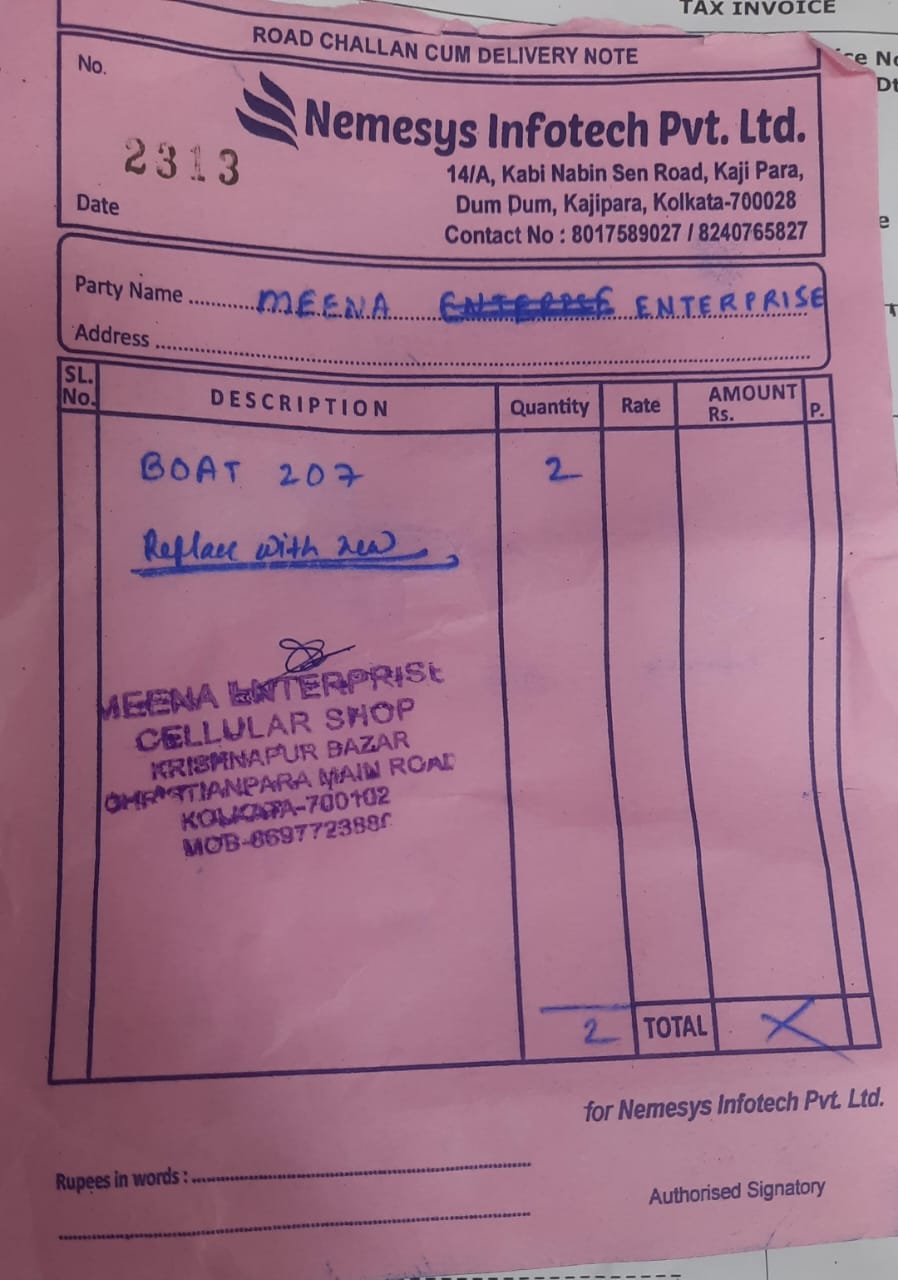 TAX INVOICE
ROAD CHALLAN CUM DELIVERY NOTE
No.
2313
Date
Nemesys Infotech Pvt. Ltd.
14/A, Kabi Nabin Sen Road, Kaji Para,
Dum Dum, Kajipara, Kolkata-700028
Contact No : 8017589027 / 8240765827
Party Name MEENA ENTERPRISE
Address
SL. No. DESCRIPTION Quantity Rate AMOUNT Rs. P.
BOAT 207 2
Replace with new
MEENA ENTERPRISE
CELLULAR SHOP
KRISHNAPUR BAZAR
CHRISTIANPARA MAIN ROAD
KOLKATA-700102
MOB-
2 TOTAL X
for Nemesys Infotech Pvt. Ltd.
Rupees in words :
Authorised Signatory